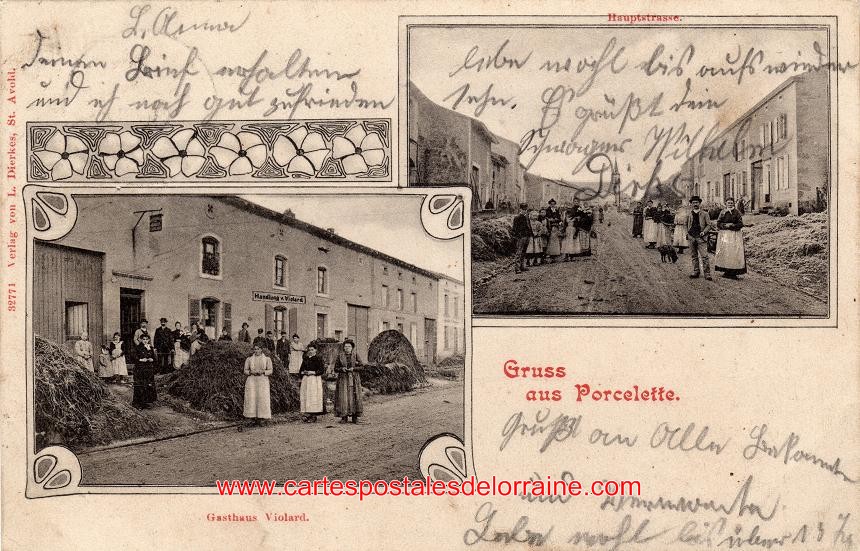 L. Anna
deinen Brief erhalten
und ich noch gut zufrieden
Hauptstrasse.
lebe wohl bis aufs wieder
sehn. Es grüßt dein
Schwager Wilhelm
32771 Verlag von L. Dierkes, St. Avold.
Handlung v. Violard
Gruss
aus Porcelette.
Gruß an Alle Bekannte
und Verwante
Lebe wohl bis über 13
www.cartespostalesdelorraine.com
Gasthaus Violard.